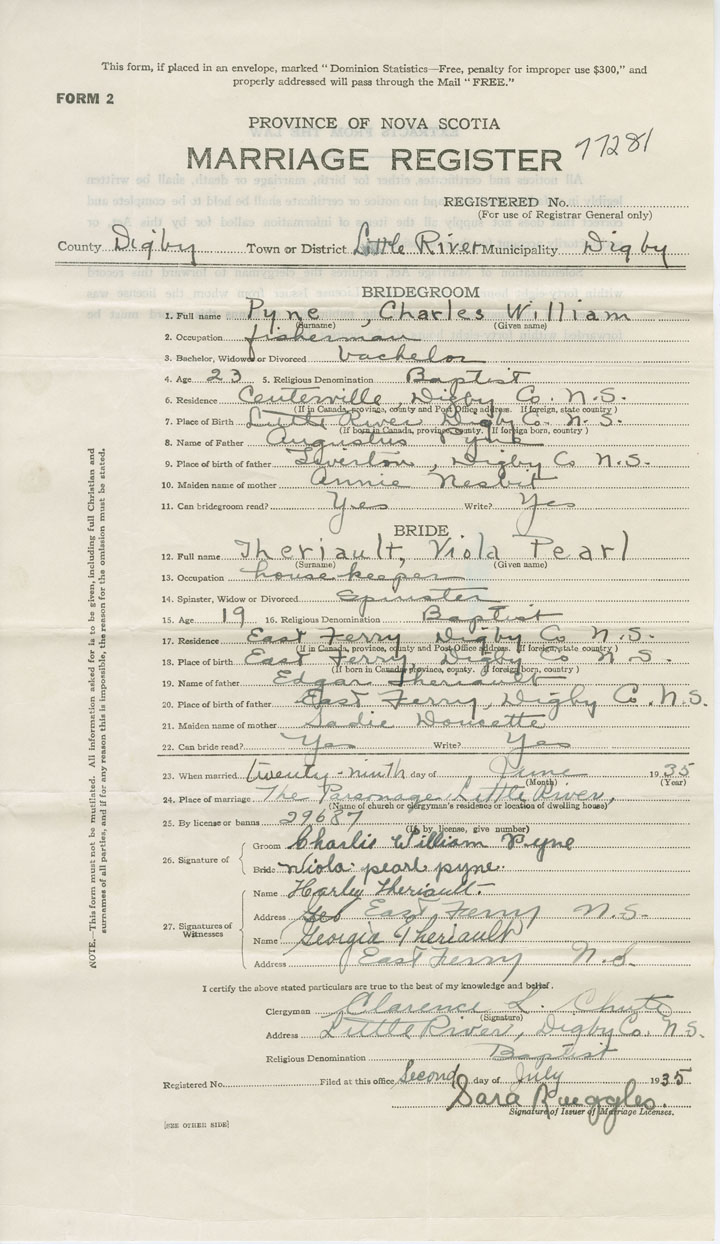 This form, if placed in an envelope, marked "Dominion Statistics—Free, penalty for improper use $300," and
properly addressed will pass through the Mail "FREE."
FORM 2
PROVINCE OF NOVA SCOTIA
MARRIAGE REGISTER 77281
REGISTERED No.
(For use of Registrar General only)
County Digby Town or District Little River Municipality Digby
BRIDEGROOM
1. Full name Pyne, Charles William
(Surname) (Given name)
2. Occupation fisherman
3. Bachelor, Widower or Divorced bachelor
4. Age 23 5. Religious Denomination Baptist
6. Residence Centerville, Digby Co. N.S.
(If in Canada, province, county and Post Office address. If foreign, state country)
7. Place of Birth Little River Digby Co. N.S.
(If born in Canada, province, county. If foreign born, country)
8. Name of Father Augustus Pyne
9. Place of birth of father Tiverton, Digby Co N.S.
10. Maiden name of mother Annie Nesbit
11. Can bridegroom read? Yes Write? Yes
BRIDE
12. Full name Theriault, Viola Pearl
(Surname) (Given name)
13. Occupation housekeeper
14. Spinster, Widow or Divorced Spinster
15. Age 19 16. Religious Denomination Baptist
17. Residence East Ferry Digby Co N.S.
(If in Canada, province, county and Post Office address. If foreign, state country)
18. Place of birth East Ferry, Digby Co N.S.
(If born in Canada province, county. If foreign born, country)
19. Name of father Edgar Theriault
20. Place of birth of father East Ferry, Digby Co. N.S.
21. Maiden name of mother Sadie Doucette
22. Can bride read? Yes Write? Yes
23. When married twenty-ninth day of June 1935
(Month) (Year)
24. Place of marriage The Parsonage, Little River,
(Name of church or clergyman's residence or location of dwelling house)
25. By license or banns 29687
(If by license, give number)
26. Signature of
Groom Charlis William Pyne
Bride Viola pearl pyne
27. Signatures of Witnesses
Name Harley Theriault
Address East Ferry N.S.
Name Georgia Theriault
Address East Ferry N.S.
I certify the above stated particulars are true to the best of my knowledge and belief.
Clergyman Clarence L. Chute
(Signature)
Address Little River, Digby Co. N.S.
Religious Denomination Baptist
Registered No. Filed at this office Second day of July 1935
Sara Rueggles
Signature of Issuer of Marriage Licenses.
[SEE OTHER SIDE]
NOTE.—This form must not be mutilated. All information asked for is to be given, including full Christian and
surnames of all parties, and if for any reason this is impossible, the reason for the omission must be stated.